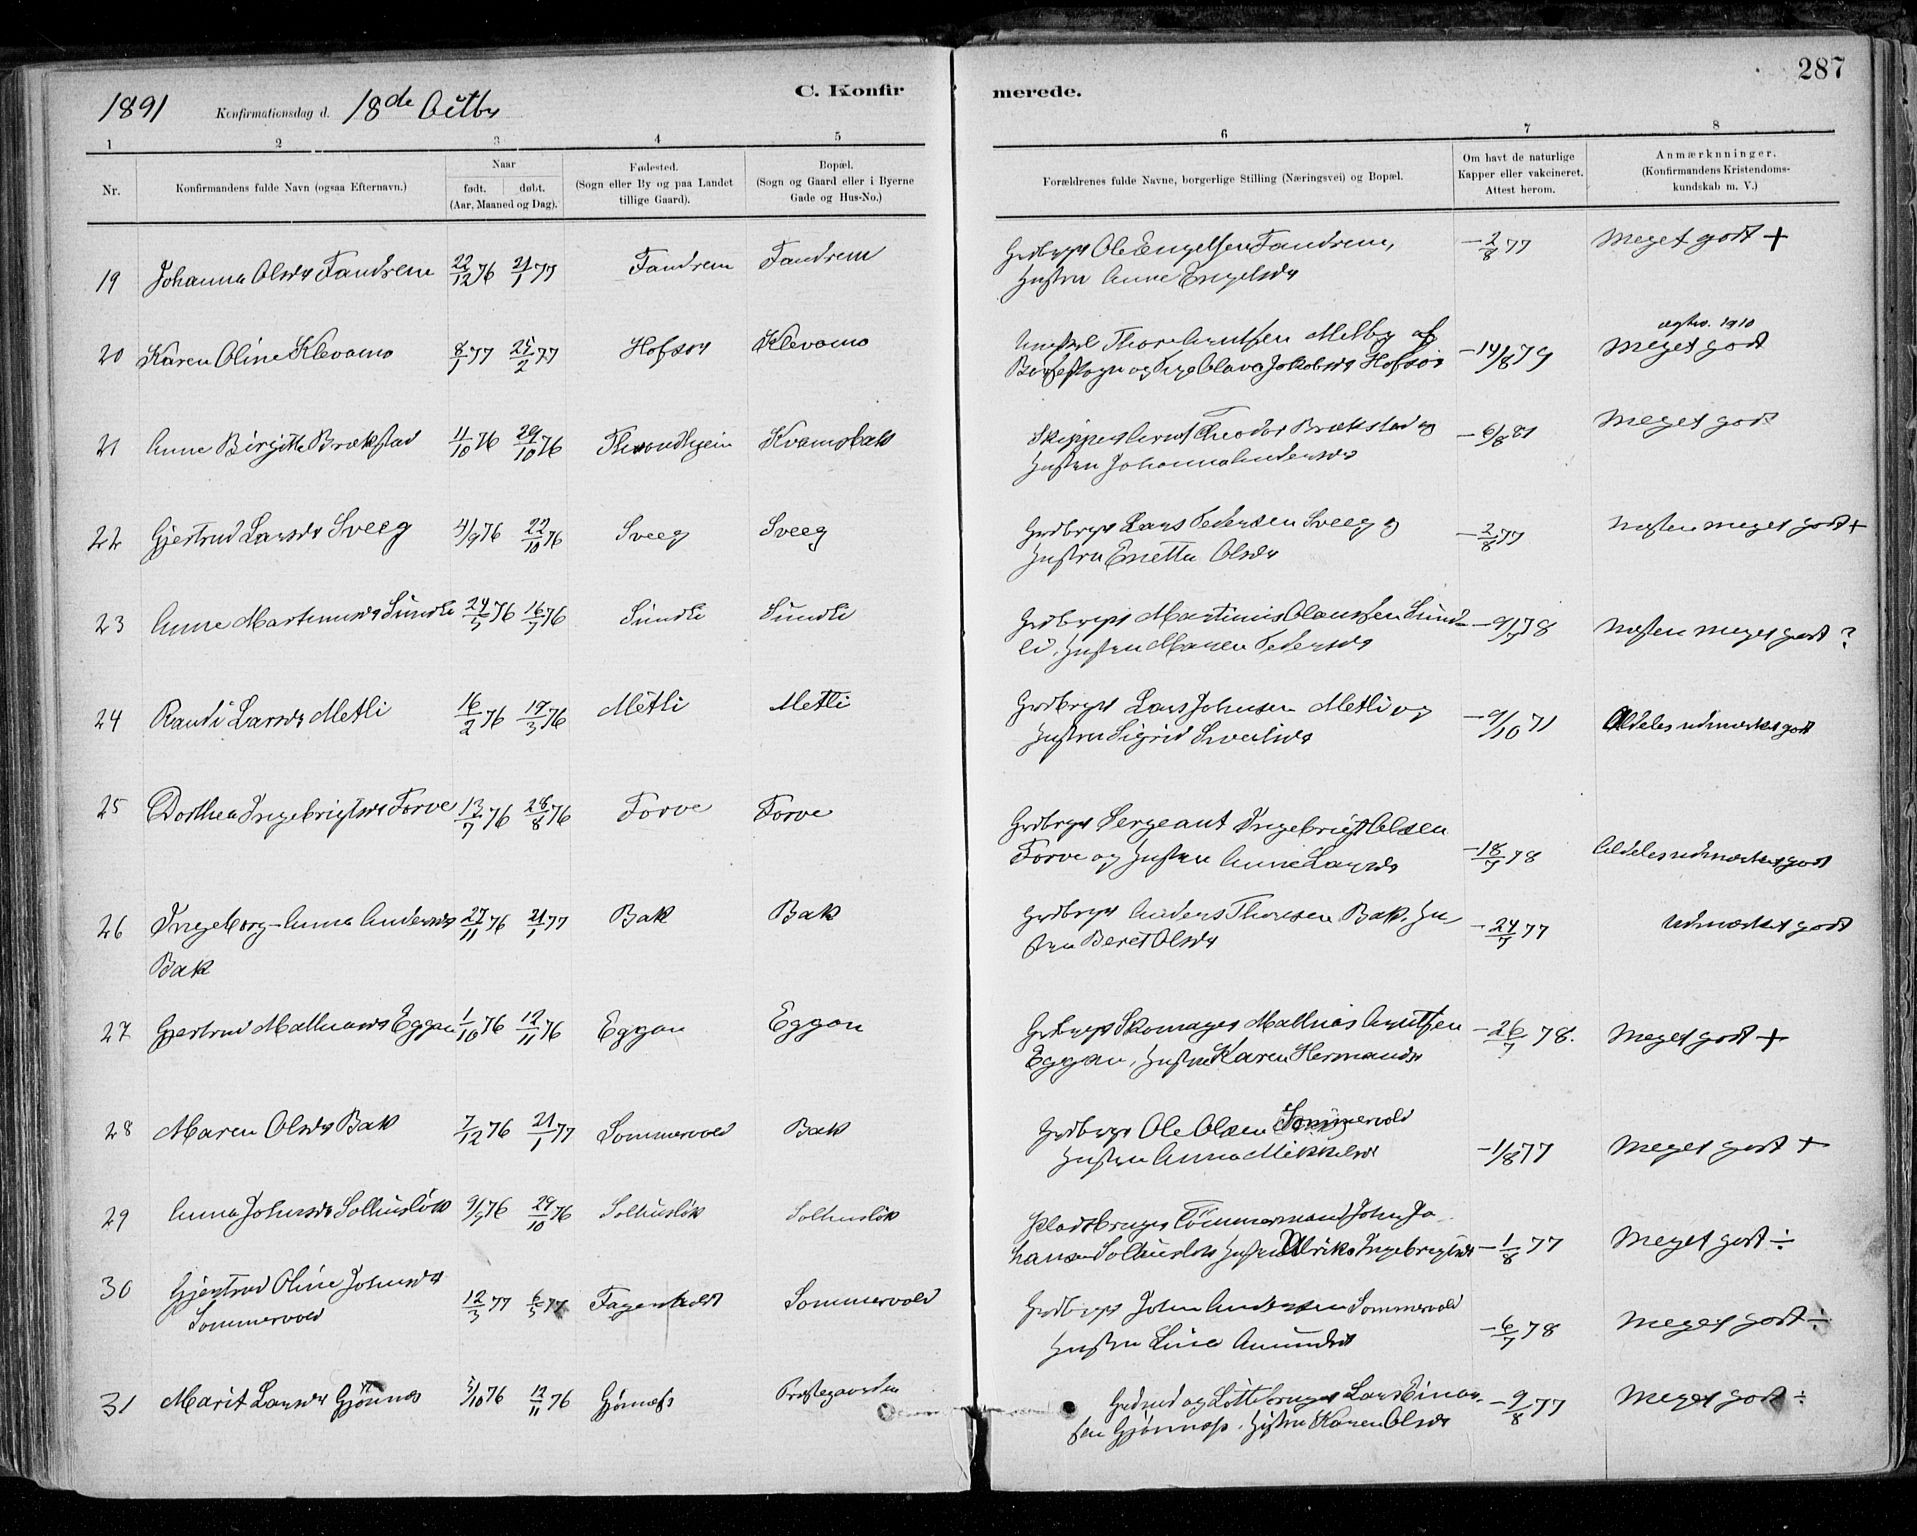 287
1891 Konfirmationsdag d. 18de Octbr
C. Konfirmerede.
1 2 3 4 5 6 7 8
Nr.
Konfirmandens fulde Navn (ogsaa Efternavn.)
Naar
født. døbt.
(Aar, Maaned og Dag).
Fødested.
(Sogn eller By og paa Landet
tillige Gaard).
Bopæl.
(Sogn og Gaard eller i Byerne
Gade og Hus-No.)
Forældrenes fulde Navne, borgerlige Stilling (Næringsvei) og Bopæl.
Om havt de naturlige
Kapper eller vakcineret.
Attest herom.
Anmærknninger.
(Konfirmandens Kristendoms-
kundskab m. V.)
19 Johanna Olsdr Fandrem 22/12 76 21/1 77 Fandrem Fandrem Grdbrgr Ole Engelsen Fandrem, – 2/8 77 Meget godt +
Hustru Anne Engelsdr
ægtev. 1910
20 Karen Oline Klevamo 8/1 77 25/2 77 Hofsør Klevamo Thore Arntsen Melby af – 14/8 79 Meget godt
og Olava Jakobsdr Hofsør
21 Anne Birgitte Brækstad 11/10 76 29/10 76 Throndhjem Kvamsbak Skipper Arnt Theodor Brækstad og – 6/8 81 Meget godt
Hustru Johanna Andersdr
22 Gjertrud Larsdr Sveeg 4/9 76 22/10 76 Sveeg Sveeg Grdbrgr Lars Pedersen Sveeg og – 2/8 77 Næsten meget godt +
Hustru Enetta Olsdr
23 Anne Martinusdr Sundli 24/5 76 16/7 76 Sundli Sundli Grdbrgr Martinus Olaussen Sund- – 9/7 78 Næsten meget godt ?
li, Hustru Maren Pedersdr
24 Randi Larsdr Metli 16/2 76 19/3 76 Metli Metli Grdbrgr Lars Johnsen Metli og – 9/10 71 Aldeles udmærket godt
Hustru Sigrid Sivertsdr
25 Dorthea Ingebrigtsdr Forve 13/7 76 28/8 76 Forve Forve Grdbrgr Sergeant Ingebrigt Olsen
Forve og Hustru Anne Larsdr – 18/7 78 Aldeles udmærket godt
26 Ingeborg Anna Andersdr 27/11 76 21/1 77 Bak Bak Grdbrgr Anders Thoresen Bak, Hu- – 24/7 77 Udmærket godt
Bak stru Beret Olsdr
27 Gjertrud Mathiasdr Eggan 1/10 76 12/11 76 Eggan Eggan Skomager Mathias Arntsen – 26/7 78. Meget godt +
Eggan, Hustru Karen Hermansdr
28 Maren Olsdr Bak 7/12 76 21/1 77 Sommervold Bak Grdbrgr Ole Olsen Sommervold
Hustru Anna Mikkelsdr – 1/8 77 Meget godt +
29 Anna Johnsdr Solhusløk 9/9 76 29/10 76 Solhusløk Solhusløk Pladsbruger Tømmermand John Jo-
hansen Solhusløk Hustru Ulrika Ingebrigtsdr – 1/8 77 Meget godt ÷
30 Gjertrud Oline Johnsdr 12/3 77 6/5 77 Fagerholdt Sommervold Grdbrgr John Andersen Sommervold – 6/7 78 Meget godt ÷
Sommervold Hustru Line Amundsdr
31 Marit Larsdr Gjønnes 5/10 76 12/11 76 Gjønnæss Præstegaarden Lars Einar- – 9/8 77 Meget godt ÷
sen Gjønnæss, Hustru Karen Olsdr